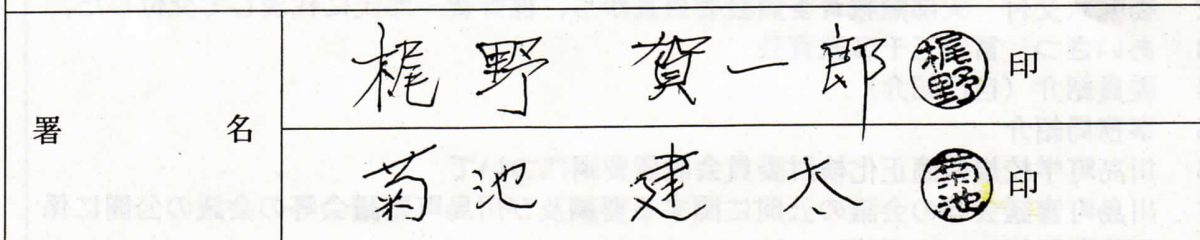 署名
梶野 賀一郎 梶野 印
菊池 建太 菊池 印